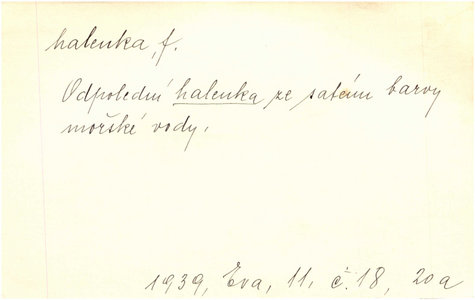 halenka, f.
Odpolední halenka ze saténu barvy
mořské vody.
1939, Eva, 11, č. 18, 20a